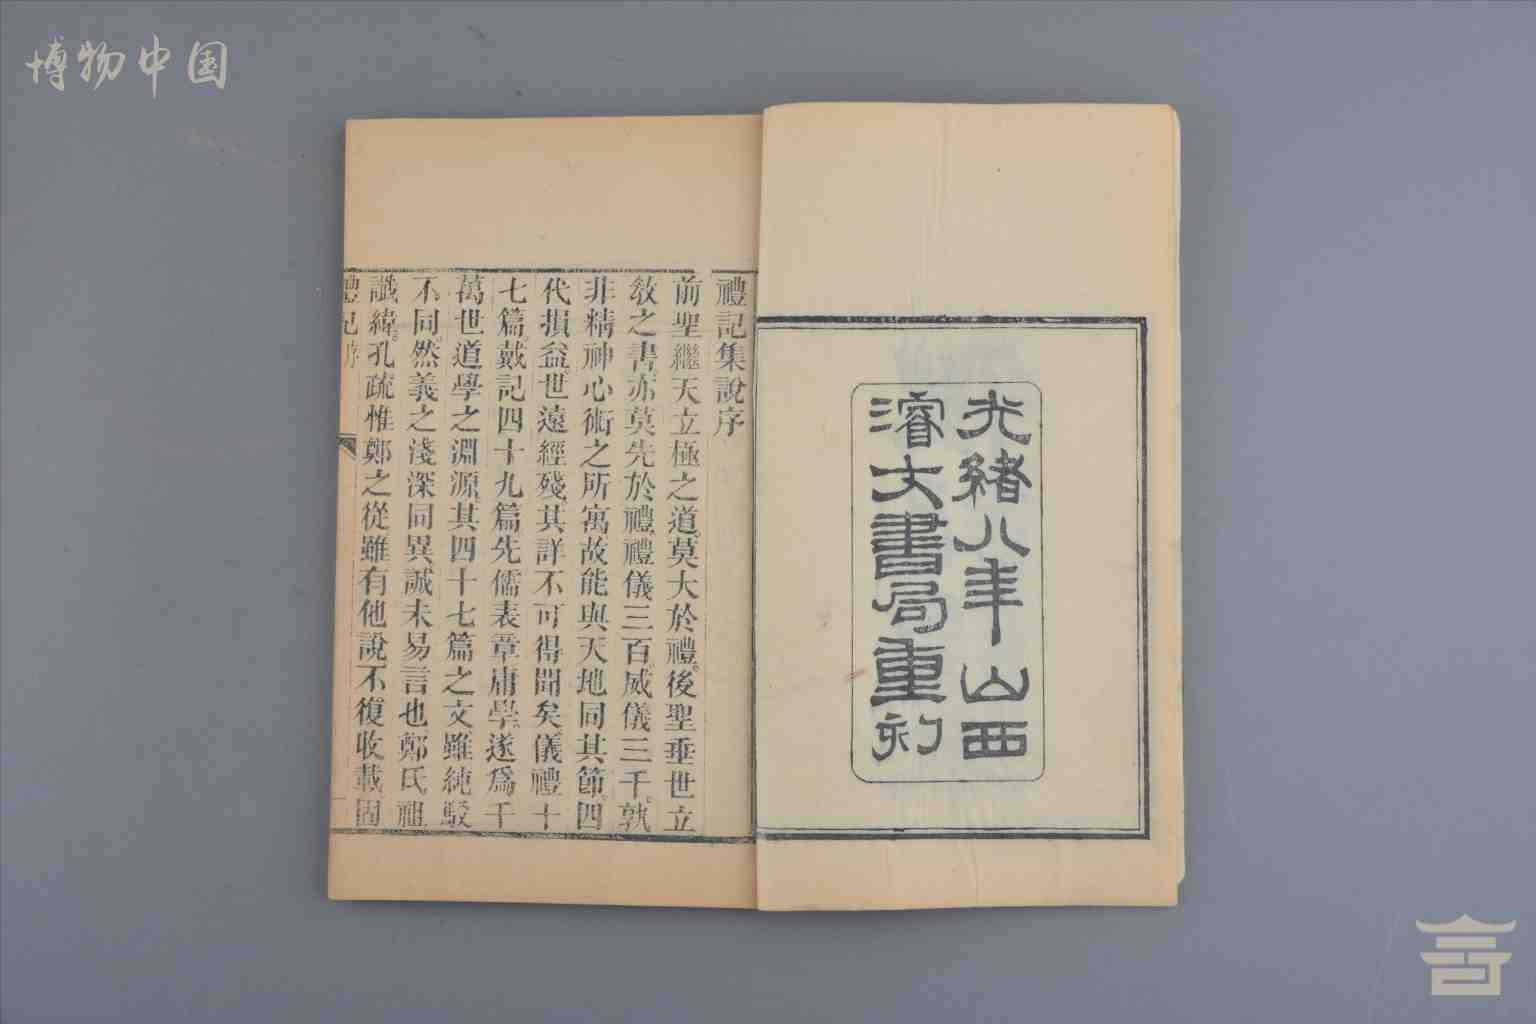 博物中国
光緒八年山西
濬文書局重刻
禮記集說序
前聖繼天立極之道莫大於禮後聖垂世立
敎之書亦莫先於禮禮儀三百威儀三千孰
非精神心術之所寓故能與天地同其節四
代損益世遠經殘其詳不可得聞矣儀禮十
七篇戴記四十九篇先儒表章庸學遂爲千
萬世道學之淵源其四十七篇之文雖純駁
不同然義之淺深同異誠未易言也鄭氏祖
讖緯孔疏惟鄭之從雖有他說不復收載固
禮記序